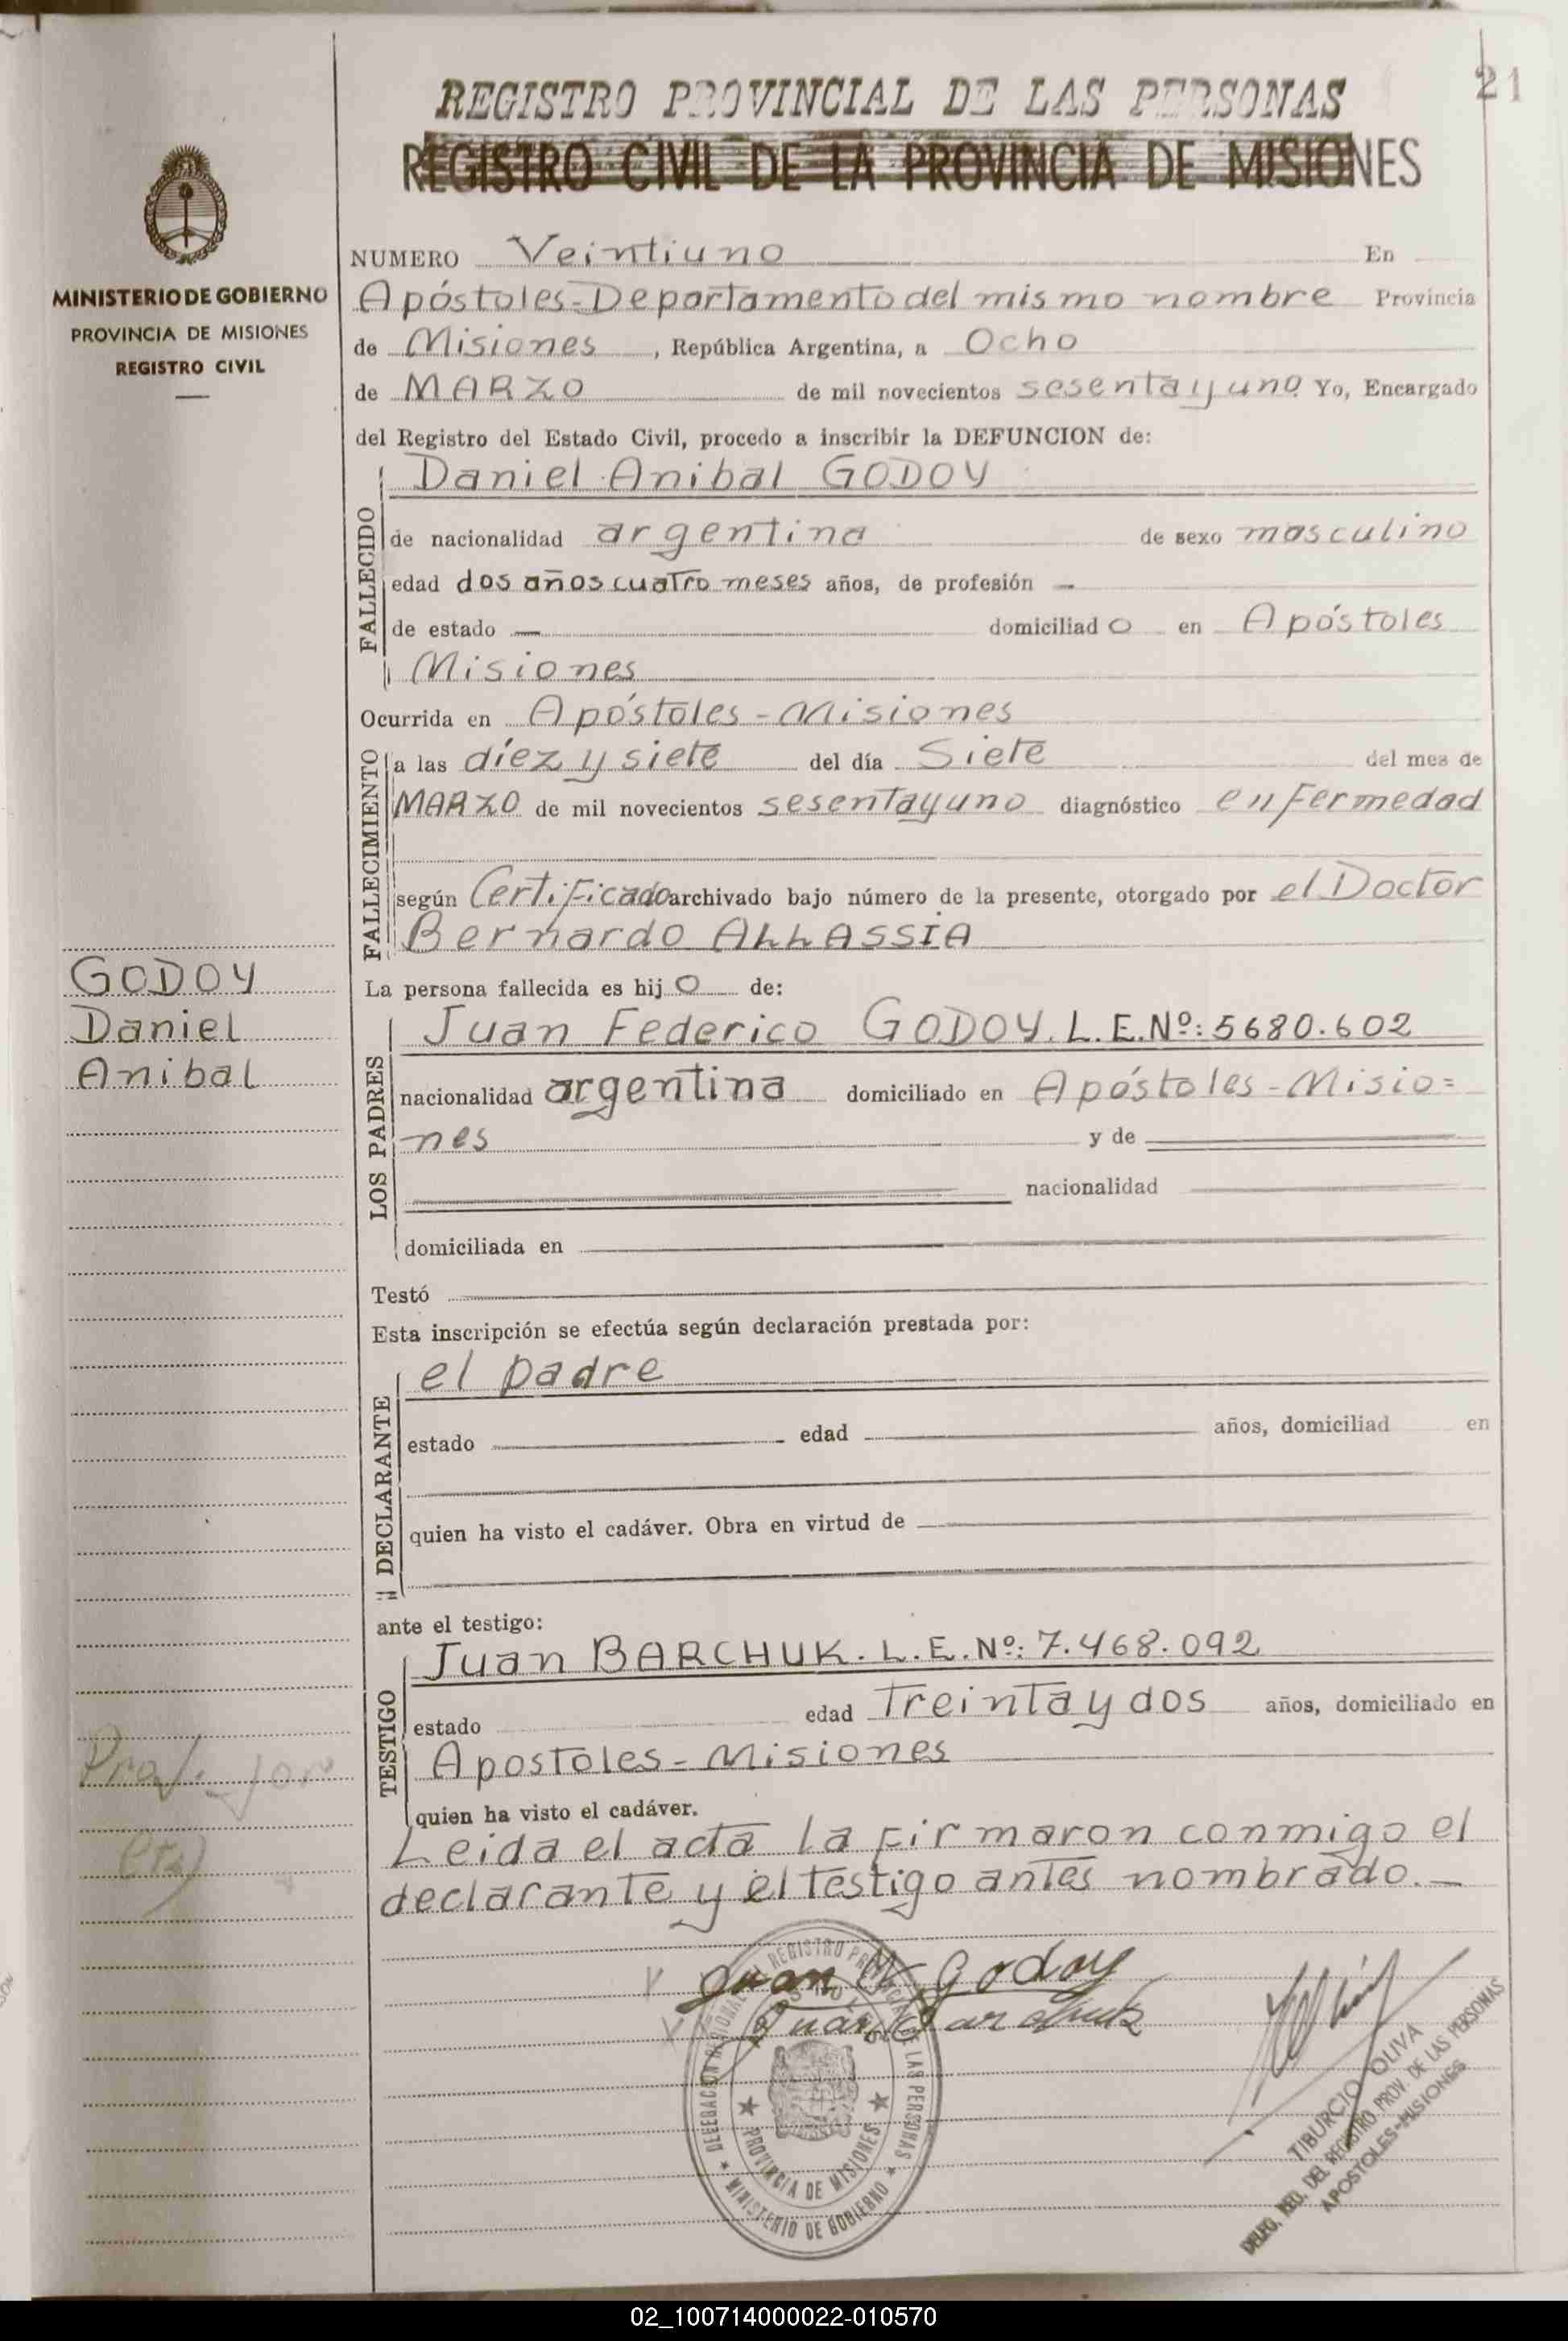 21
REGISTRO PROVINCIAL DE LAS PERSONAS
REGISTRO CIVIL DE LA PROVINCIA DE MISIONES
MINISTERIO DE GOBIERNO
PROVINCIA DE MISIONES
REGISTRO CIVIL
NUMERO Veintiuno En
Apóstoles=Departamento del mismo nombre Provincia
de Misiones, República Argentina, a Ocho
de MARZO de mil novecientos sesenta y uno Yo, Encargado
del Registro del Estado Civil, procedo a inscribir la DEFUNCION de:
FALLECIDO
Daniel Anibal GODOY
de nacionalidad argentina de sexo masculino
edad dos años cuatro meses años, de profesión —
de estado — domiciliado en Apóstoles
Misiones
Ocurrida en Apóstoles-Misiones
FALLECIMIENTO
a las díez y siete del día Siete del mes de
MARZO de mil novecientos sesenta y uno diagnóstico enfermedad
según Certificado archivado bajo número de la presente, otorgado por el Doctor
Bernardo ALLASSIA
GODOY
Daniel
Anibal
La persona fallecida es hijo de:
LOS PADRES
Juan Federico GODOY. L.E.Nº: 5680.602
nacionalidad argentina domiciliado en Apóstoles-Misio=
nes y de
nacionalidad
domiciliada en
Testó
Esta inscripción se efectúa según declaración prestada por:
DECLARANTE
el padre
estado edad años, domiciliad en
quien ha visto el cadáver. Obra en virtud de
ante el testigo:
TESTIGO
Juan BARCHUK. L.E.Nº: 7.468.092
estado edad Treinta y dos años, domiciliado en
Apostoles-Misiones
quien ha visto el cadáver.
Leida el acta la firmaron conmigo el
declarante y el testigo antes nombrado.—
Juan F Godoy
Juan Barchuk
DELEGACION REGIONAL REGISTRO PROVINCIAL DE LAS PERSONAS
APOSTOLES
PROVINCIA DE MISIONES
MINISTERIO DE GOBIERNO
TIBURCIO OLIVA
DELEG. REG. DEL REGISTRO PROV. DE LAS PERSONAS
APOSTOLES-MISIONES
02_100714000022-010570